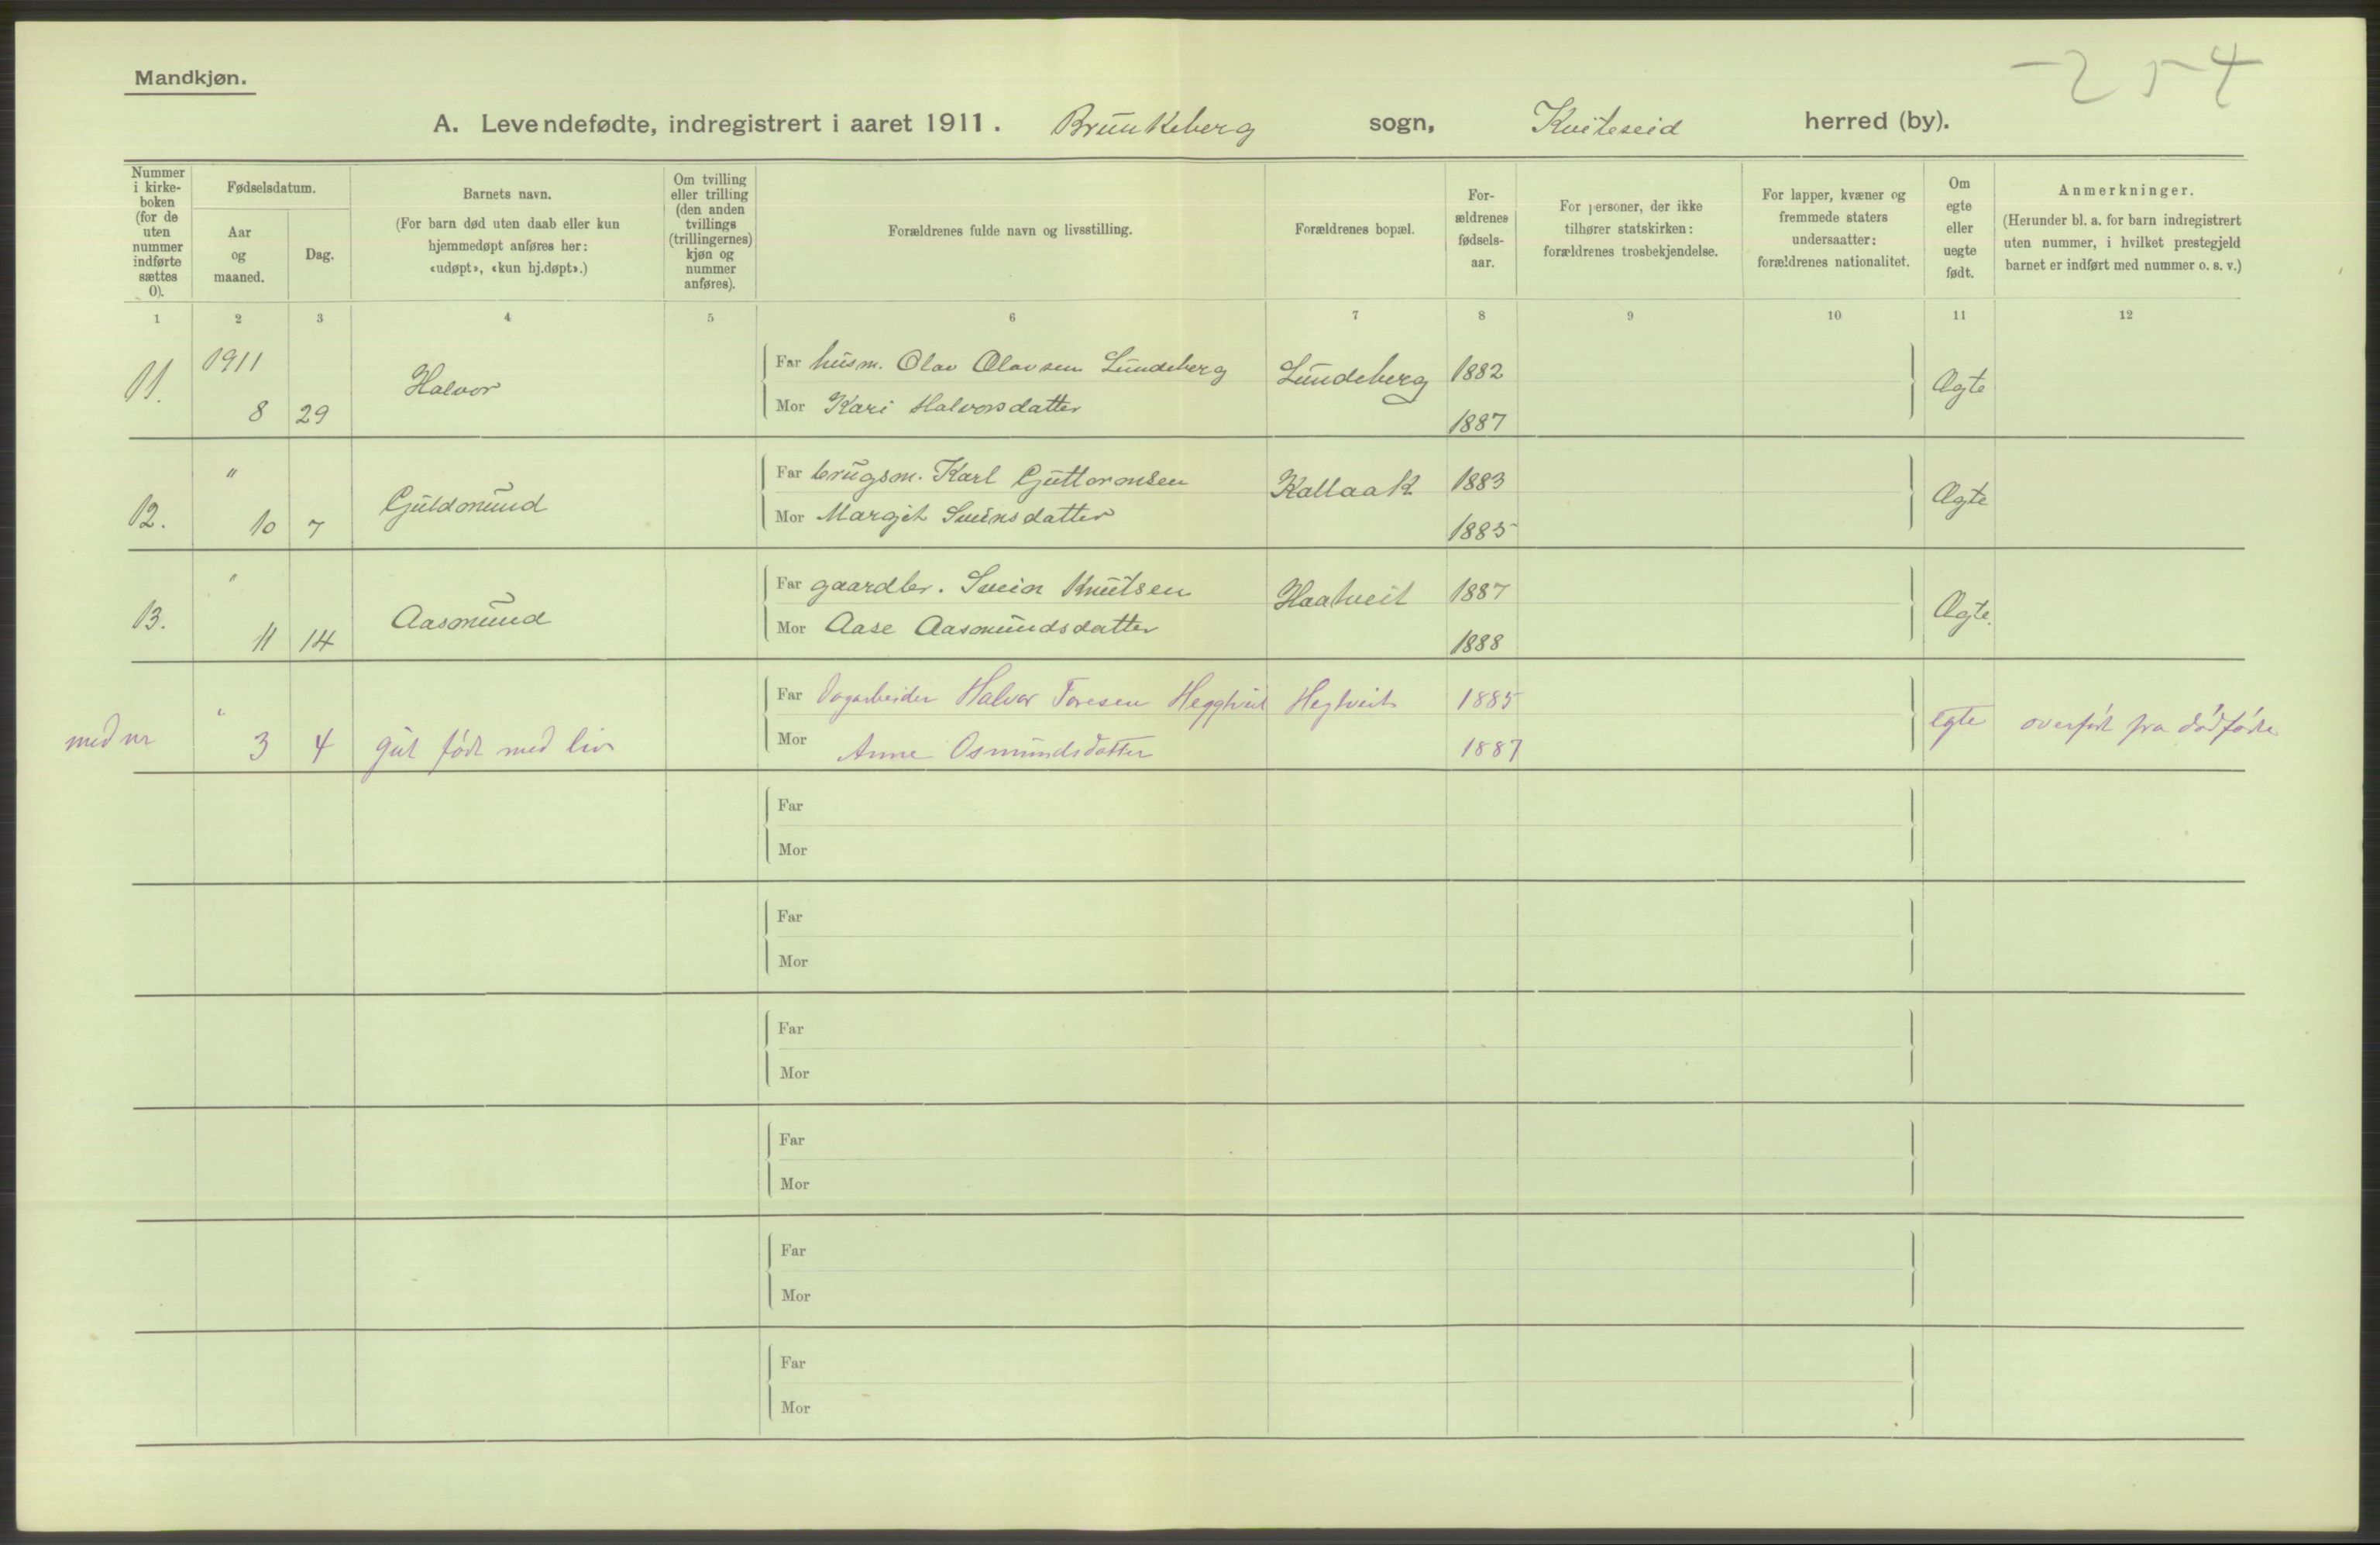 -254
Mandkjøn.
A. Levendefødte, indregistrert i aaret 1911. Brunkeberg sogn, Kviteseid herred (by).
Nummer i kirkeboken (for de uten nummer indførte sættes 0).
Fødselsdatum.
Aar og maaned.
Dag.
Barnets navn.
(For barn død uten daab eller kun hjemmedøpt anføres her: «udøpt», «kun hj.døpt».)
Om tvilling eller trilling (den anden tvillings (trillingernes) kjøn og nummer anføres).
Forældrenes fulde navn og livsstilling.
Forældrenes bopæl.
Forældrenes fødselsaar.
For personer, der ikke tilhører statskirken: forældrenes trosbekjendelse.
For lapper, kvæner og fremmede staters undersaatter: forældrenes nationalitet.
Om egte eller uegte født.
Anmerkninger.
(Herunder bl. a. for barn indregistrert uten nummer, i hvilket prestegjeld barnet er indført med nummer o. s. v.)
1 2 3 4 5 6 7 8 9 10 11 12
11. 1911 8 29 Halvor
Far husm. Olav Olavsen Lundeberg Lundeberg 1882 Ægte
Mor Kari Halvorsdatter 1887
12. " 10 7 Guldmund
Far brugsm. Karl Guttormsen Kallaak 1883 Ægte
Mor Margit Sveinsdatter 1885
13. " 11 14 Aasmund
Far gaardbr. Svein Knutsen Haatveit 1887 Ægte.
Mor Aase Aasmundsdatter 1888
med nr " 3 4 gut født med liv
Far Dagarbeider Halvor Toresen Heggtveit Hegtveit 1885 egte overført fra dødfødte
Mor Anne Osmundsdatter 1887
Far
Mor
Far
Mor
Far
Mor
Far
Mor
Far
Mor
Far
Mor